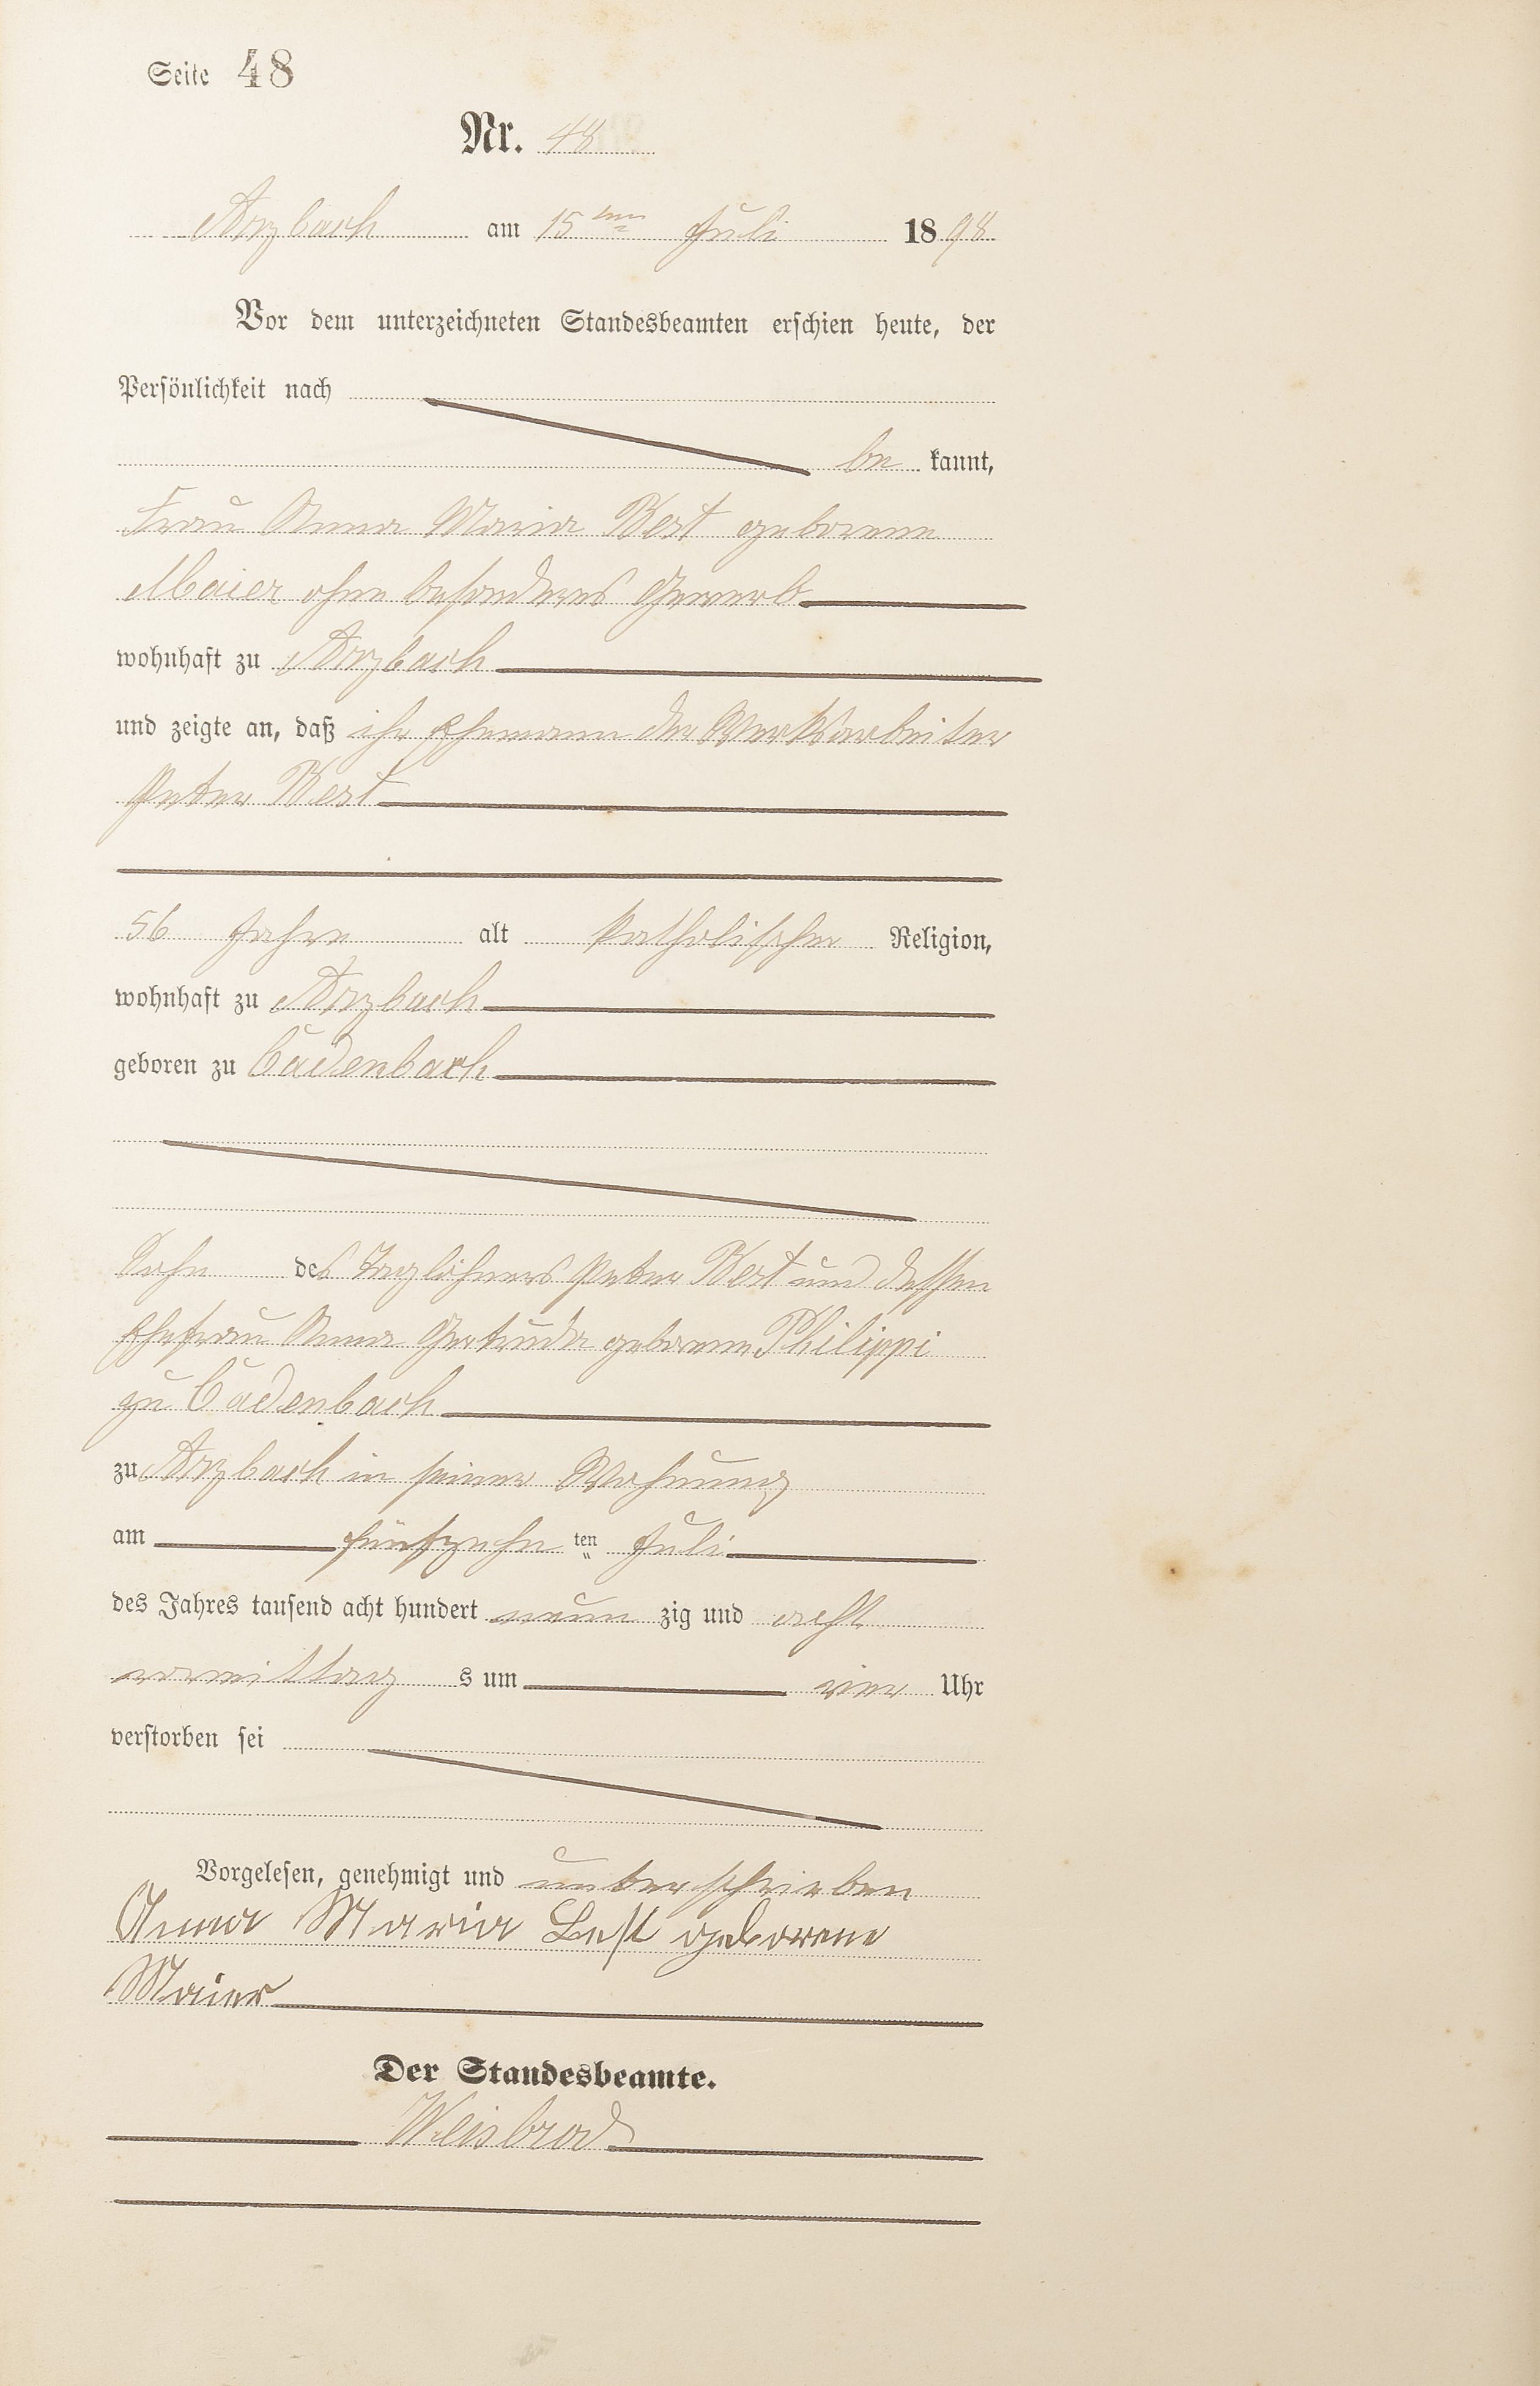 Seite 48
Nr. 48
Arzbach am 15ten Juli 1898
Vor dem unterzeichneten Standesbeamten erschien heute, der
Persönlichkeit nach
be kannt,
Frau Anna Maria Best geborene
Maier ohne besonderes Gewerb
wohnhaft zu Arzbach
und zeigte an, daß ihr Ehemann der Werksarbeiter
Peter Best
56 Jahre alt katholischer Religion,
wohnhaft zu Arzbach
geboren zu Cadenbach
Sohn des Taglöhners Peter Best und dessen
Ehefrau Anna Gertruda geborene Philippi
zu Cadenbach
zu Arzbach in seiner Wohnung
am fünfzehn ten Juli
des Jahres tausend acht hundert neun zig und acht
vormittag s um vier Uhr
verstorben sei
Vorgelesen, genehmigt und unterschrieben
Anna Maria Best geborene
Maier
Der Standesbeamte.
Weisbrod